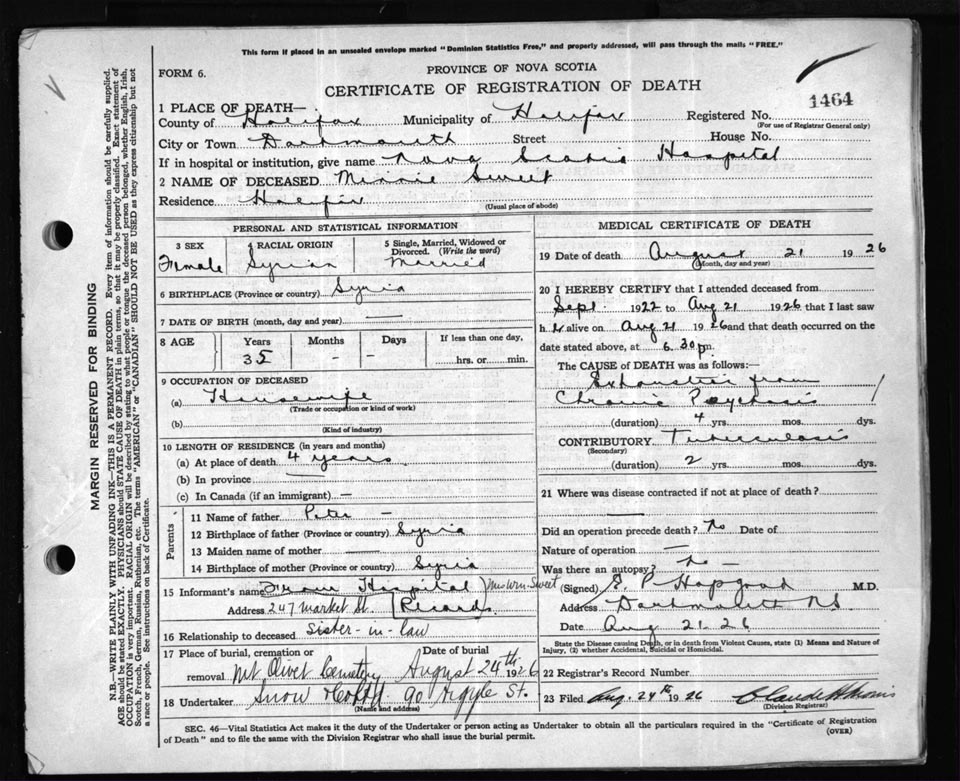 This form if placed in an unsealed envelope marked "Dominion Statistics Free," and properly addressed, will pass through the mails "FREE."
FORM 6.
PROVINCE OF NOVA SCOTIA
CERTIFICATE OF REGISTRATION OF DEATH
1464
1 PLACE OF DEATH—
County of Halifax Municipality of Halifax Registered No.
(For use of Registrar General only)
City or Town Dartmouth Street House No.
If in hospital or institution, give name Nova Scotia Hospital
2 NAME OF DECEASED Minnie Sweet
Residence Halifax
(Usual place of abode)
PERSONAL AND STATISTICAL INFORMATION
3 SEX 4 RACIAL ORIGIN 5 Single, Married, Widowed or Divorced. (Write the word)
Female Syrian Married
6 BIRTHPLACE (Province or country) Syria
7 DATE OF BIRTH (month, day and year) —
8 AGE Years Months Days If less than one day,
35 - - hrs. or min.
9 OCCUPATION OF DECEASED
(a) Housewife
(Trade or occupation or kind of work)
(b)
(Kind of industry)
10 LENGTH OF RESIDENCE (in years and months)
(a) At place of death 4 years
(b) In province —
(c) In Canada (if an immigrant) —
Parents
11 Name of father Peter —
12 Birthplace of father (Province or country) Syria
13 Maiden name of mother —
14 Birthplace of mother (Province or country) Syria
15 Informant's name From Hospital Records Mrs Wm Sweet
Address 247 Market St.
16 Relationship to deceased sister-in-law
17 Place of burial, cremation or removal Date of burial
Mt Olivet Cemetery August 24th 1926
18 Undertaker Snow 90 Argyle St.
(Name and address)
MEDICAL CERTIFICATE OF DEATH
19 Date of death August 21 1926
(Month, day and year)
20 I HEREBY CERTIFY that I attended deceased from
Sept 1922 to Aug 21 1926 that I last saw
h er alive on Aug 21 1926 and that death occurred on the
date stated above, at 6 30 p m.
The CAUSE OF DEATH was as follows:—
Exhaustion from
Chronic Psychosis
(duration) 4 yrs. mos. dys.
CONTRIBUTORY Tuberculosis
(Secondary)
(duration) 2 yrs. mos. dys.
21 Where was disease contracted if not at place of death?
—
Did an operation precede death? No Date of
Nature of operation —
Was there an autopsy? No —
(Signed) E P Hopgood M.D.
Address Dartmouth NS
Date Aug 21 26
State the Disease causing Death, or in death from Violent Causes, state (1) Means and Nature of
Injury, (2) whether Accidental, Suicidal or Homicidal.
22 Registrar's Record Number
23 Filed Aug. 24th 1926
(Division Registrar)
SEC. 46—Vital Statistics Act makes it the duty of the Undertaker or person acting as Undertaker to obtain all the particulars required in the "Certificate of Registration
of Death" and to file the same with the Division Registrar who shall issue the burial permit. (OVER)
MARGIN RESERVED FOR BINDING
N.B.—WRITE PLAINLY WITH UNFADING INK—THIS IS A PERMANENT RECORD. Every item of information should be carefully supplied.
AGE should be stated EXACTLY. PHYSICIANS should STATE CAUSE OF DEATH in plain terms, so that it may be properly classified. Exact statement of
OCCUPATION is very important. RACIAL ORIGIN will be described by stating to what people or tongue the deceased person belonged, whether English, Irish,
Scotch, French, German, Russian, Ruthenian, etc. The terms "AMERICAN" or "CANADIAN" SHOULD NOT BE USED as they express citizenship but not
a race or people. See instructions on back of Certificate.